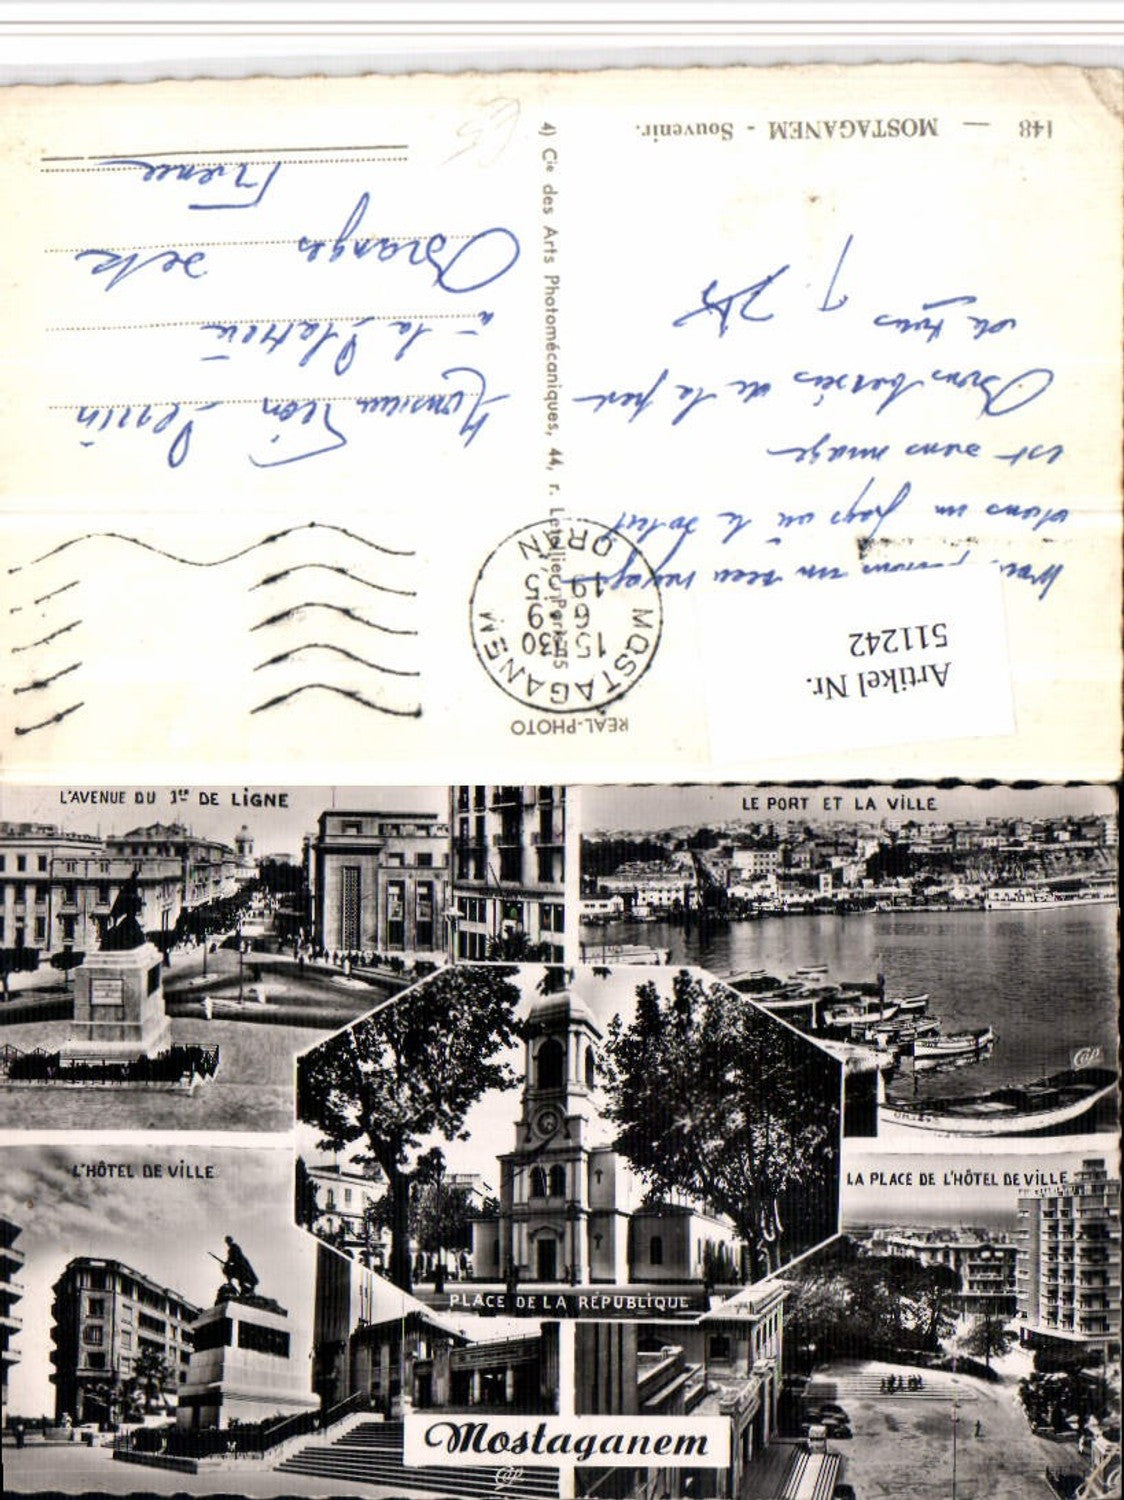 148 — MOSTAGANEM - Souvenir.
dans un pays où le soleil
est sans nuage
Bons baisers de la part
de tous
4) Cie des Arts Photomécaniques, 44, r. Letellier, Paris-15
REAL-PHOTO
MOSTAGANEM
15 H30
6-9
1955
ORAN
Monsieur Léon
à la
France
Artikel Nr.
511242
L'AVENUE DU 1er DE LiGNE
LE PORT ET LA ViLLE
L'HÔTEL DE ViLLE
LA PLACE DE L'HÔTEL DE ViLLE
PLACE DE LA RÉPUBLIQUE
Mostaganem
CAP
CAP